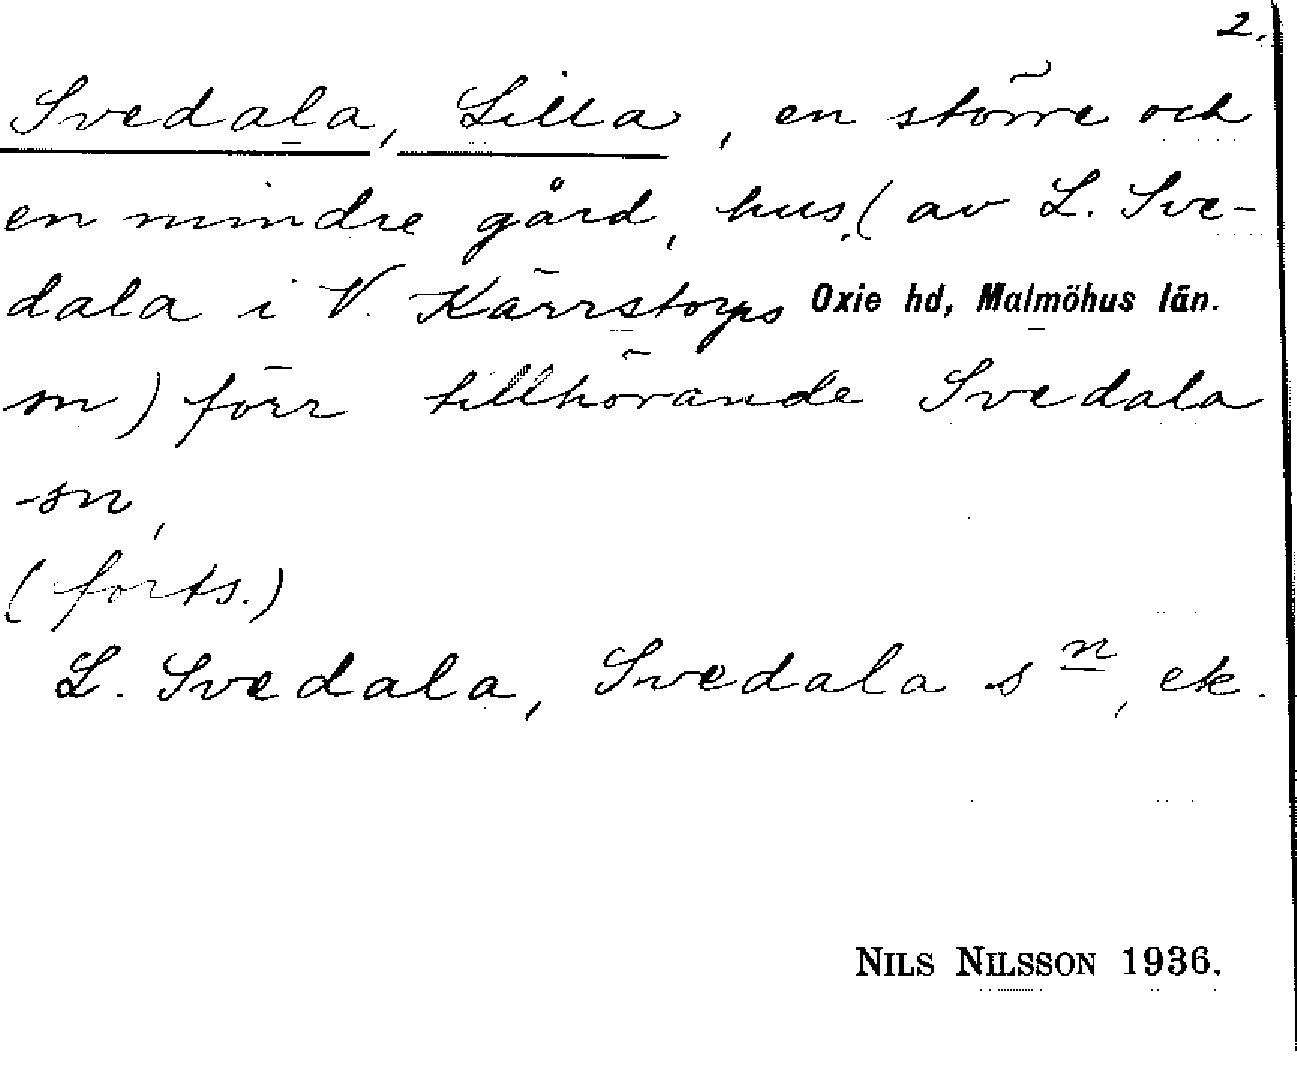 2.
Svedala, Lilla, en större och
en mindre gård, hus, (av L. Sve-
dala i V. Kärrstorps Oxie hd, Malmöhus län.
sn) förr tillhörande Svedala
-sn,
(forts.)
L. Svedala, Svedala sn, ek.
NILS NILSSON 1936.